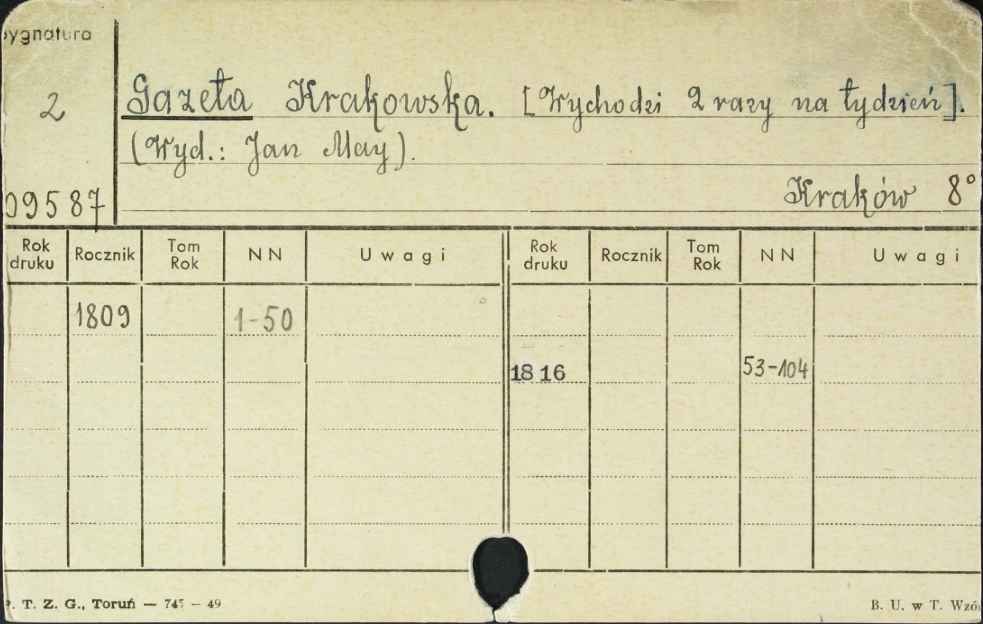 Sygnatura
2
Gazeta Krakowska. [Wychodzi 2 razy na tydzień].
(Wyd.: Jan May).
09587
Kraków 8°
Rok druku Rocznik Tom Rok NN Uwagi Rok druku Rocznik Tom Rok NN Uwagi
1809 1-50
1816 53-104
P. T. Z. G., Toruń — 745 — 49
B. U. w T. Wzó